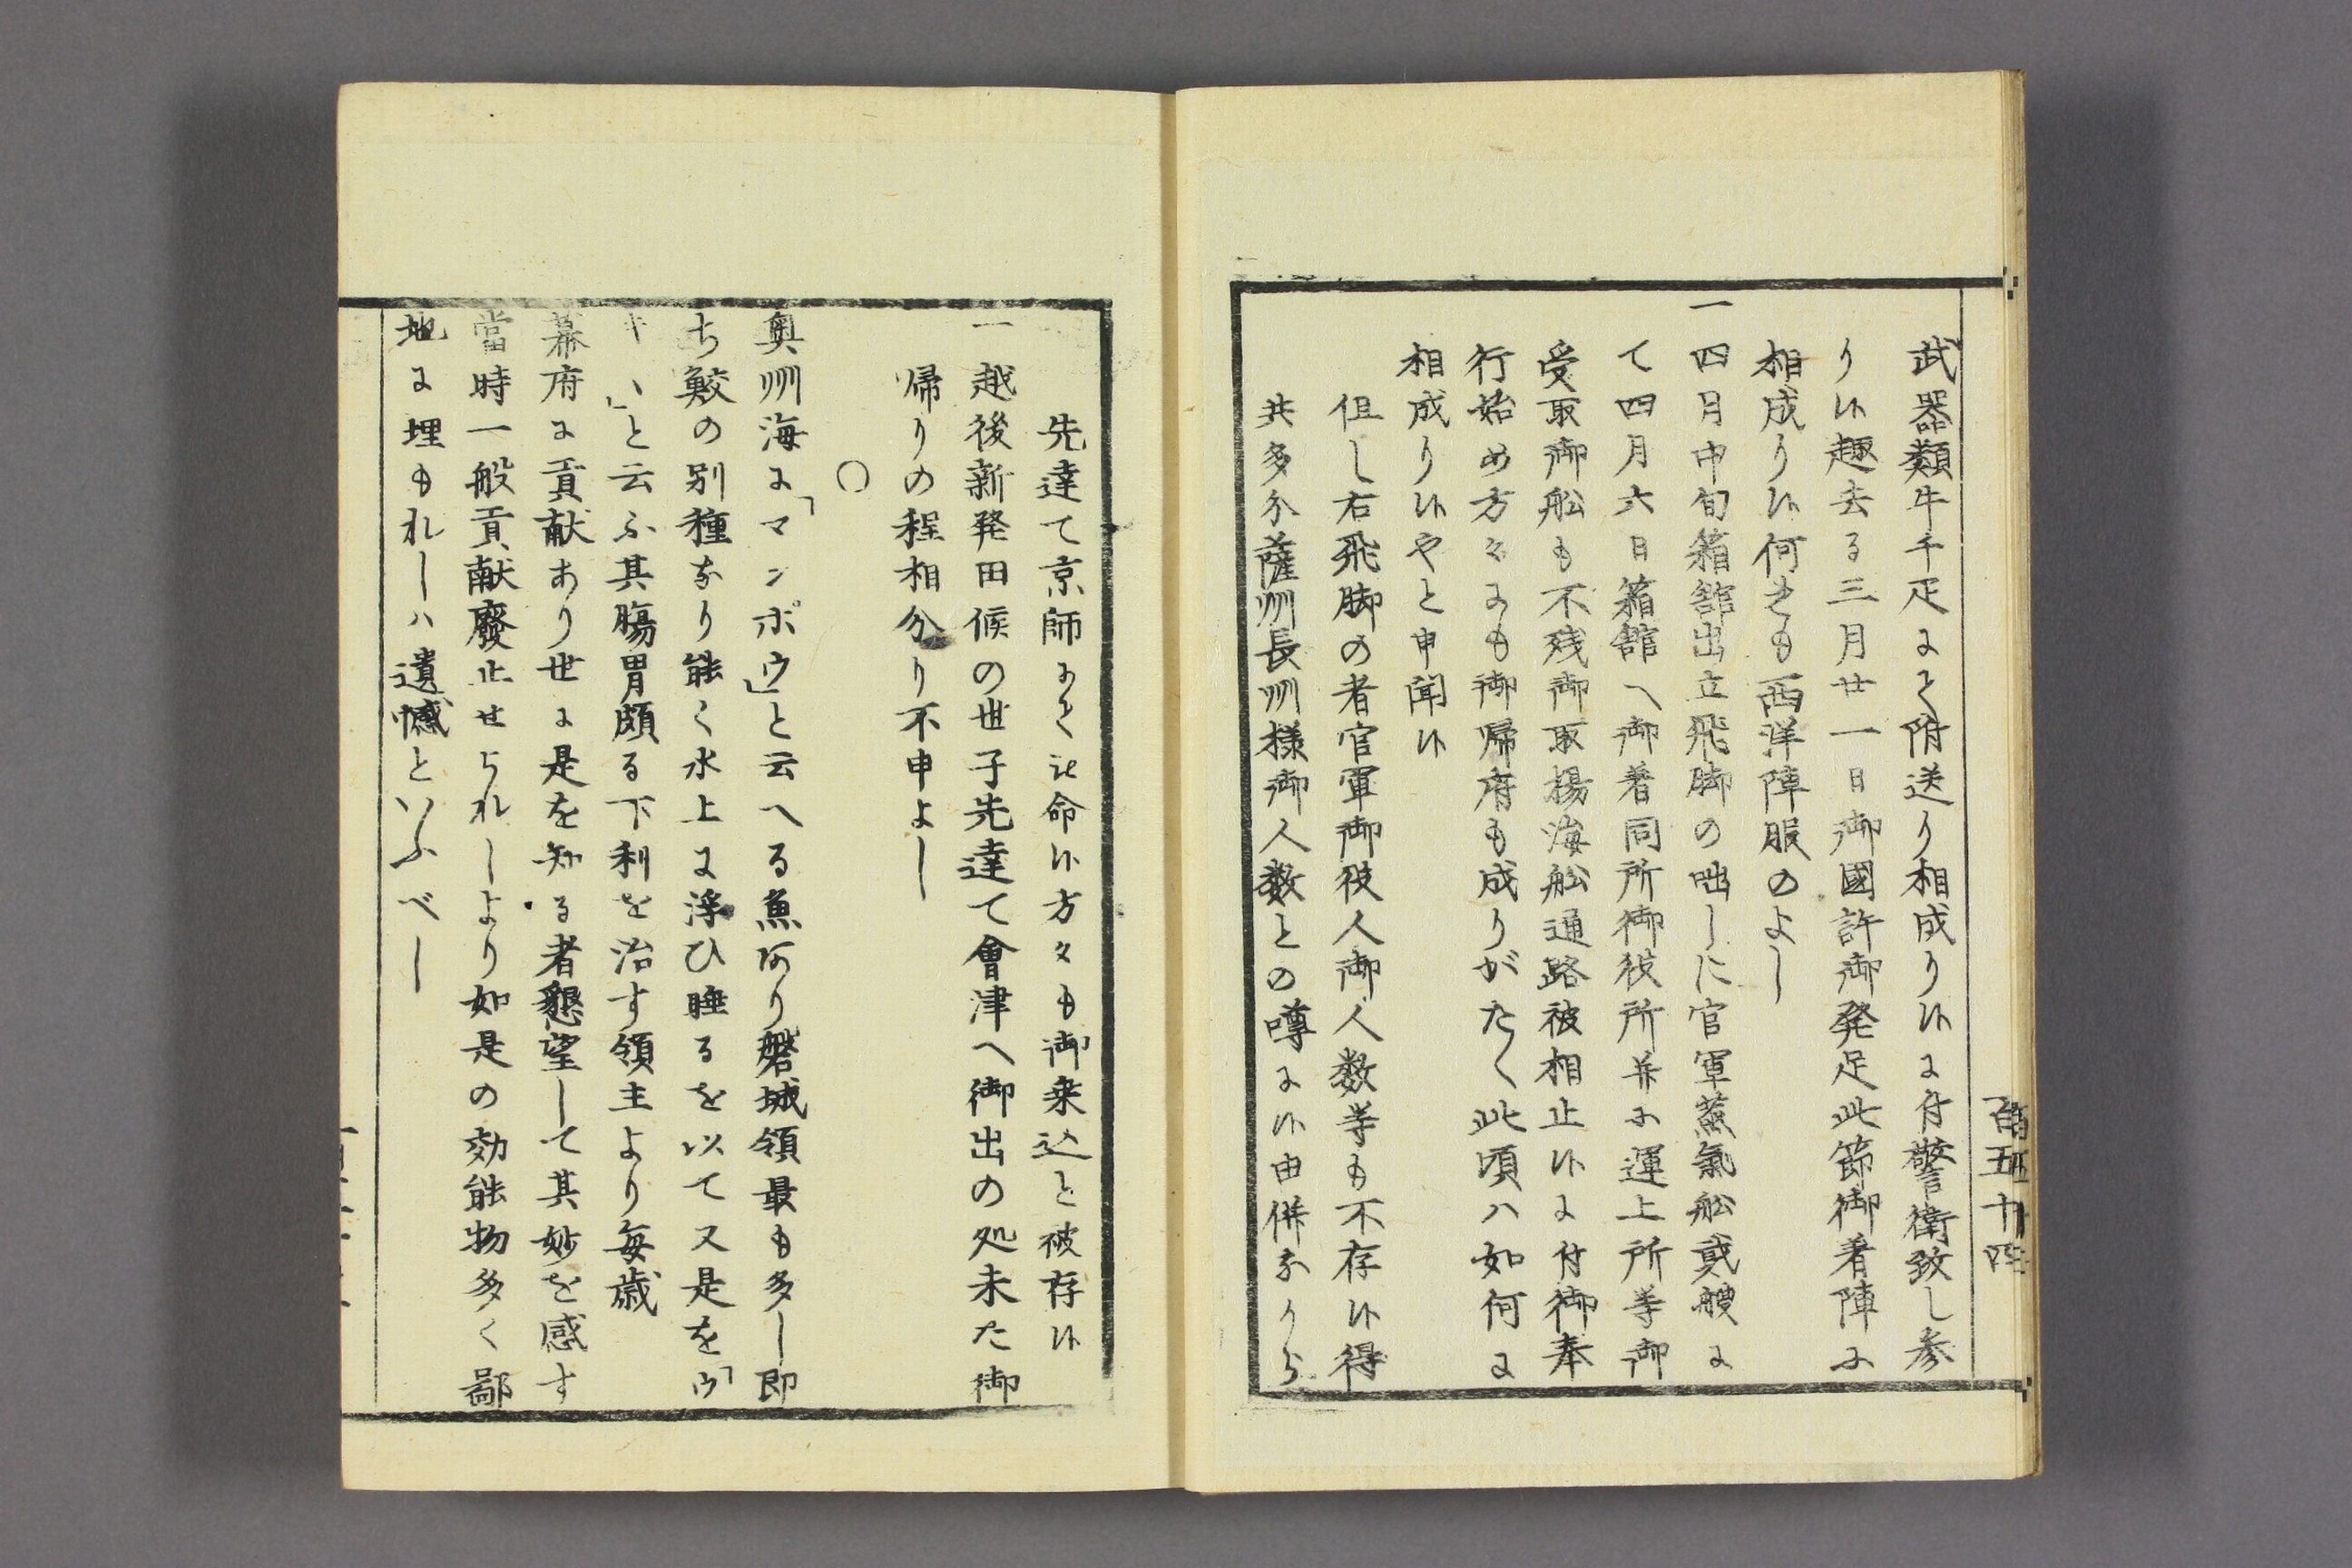 百五十四
武器類牛千疋にて附送り相成り候に付警衛致し参
り候趣去る三月廿一日御國許御発足此節御着陣に
相成り候何れも西洋陣服のよし
一四月中旬箱舘出立飛脚の咄しに官軍蒸氣舩貮艘に
て四月六日箱舘へ御着同所御役所并に運上所等御
受取御舩も不残御取揚海舩通路被相止候に付御奉
行始め方々にも御帰府も成りがたく此頃ハ如何に
相成り候やと申聞候
但し右飛脚の者官軍御役人御人数等も不存候得
共多分薩州長州様御人数との噂に候由併ながら
先達て京師にて被命候方々も御乗込と被存候
一越後新発田候の世子先達て會津へ御出の処未た御
帰りの程相分り不申よし
○
奥州海に「マンボウ」と云へる魚あり磐城領最も多し即
ち鮫の別種なり能く水上に浮ひ睡るを以て又是を「ウ
キ」と云ふ其膓胃頗る下利を治す領主より毎歳
幕府に貢献あり世に是を知る者懇望して其妙を感す
當時一般貢献廢止せられしより如是の効能物多く鄙
地に埋もれしハ遺憾といふべし